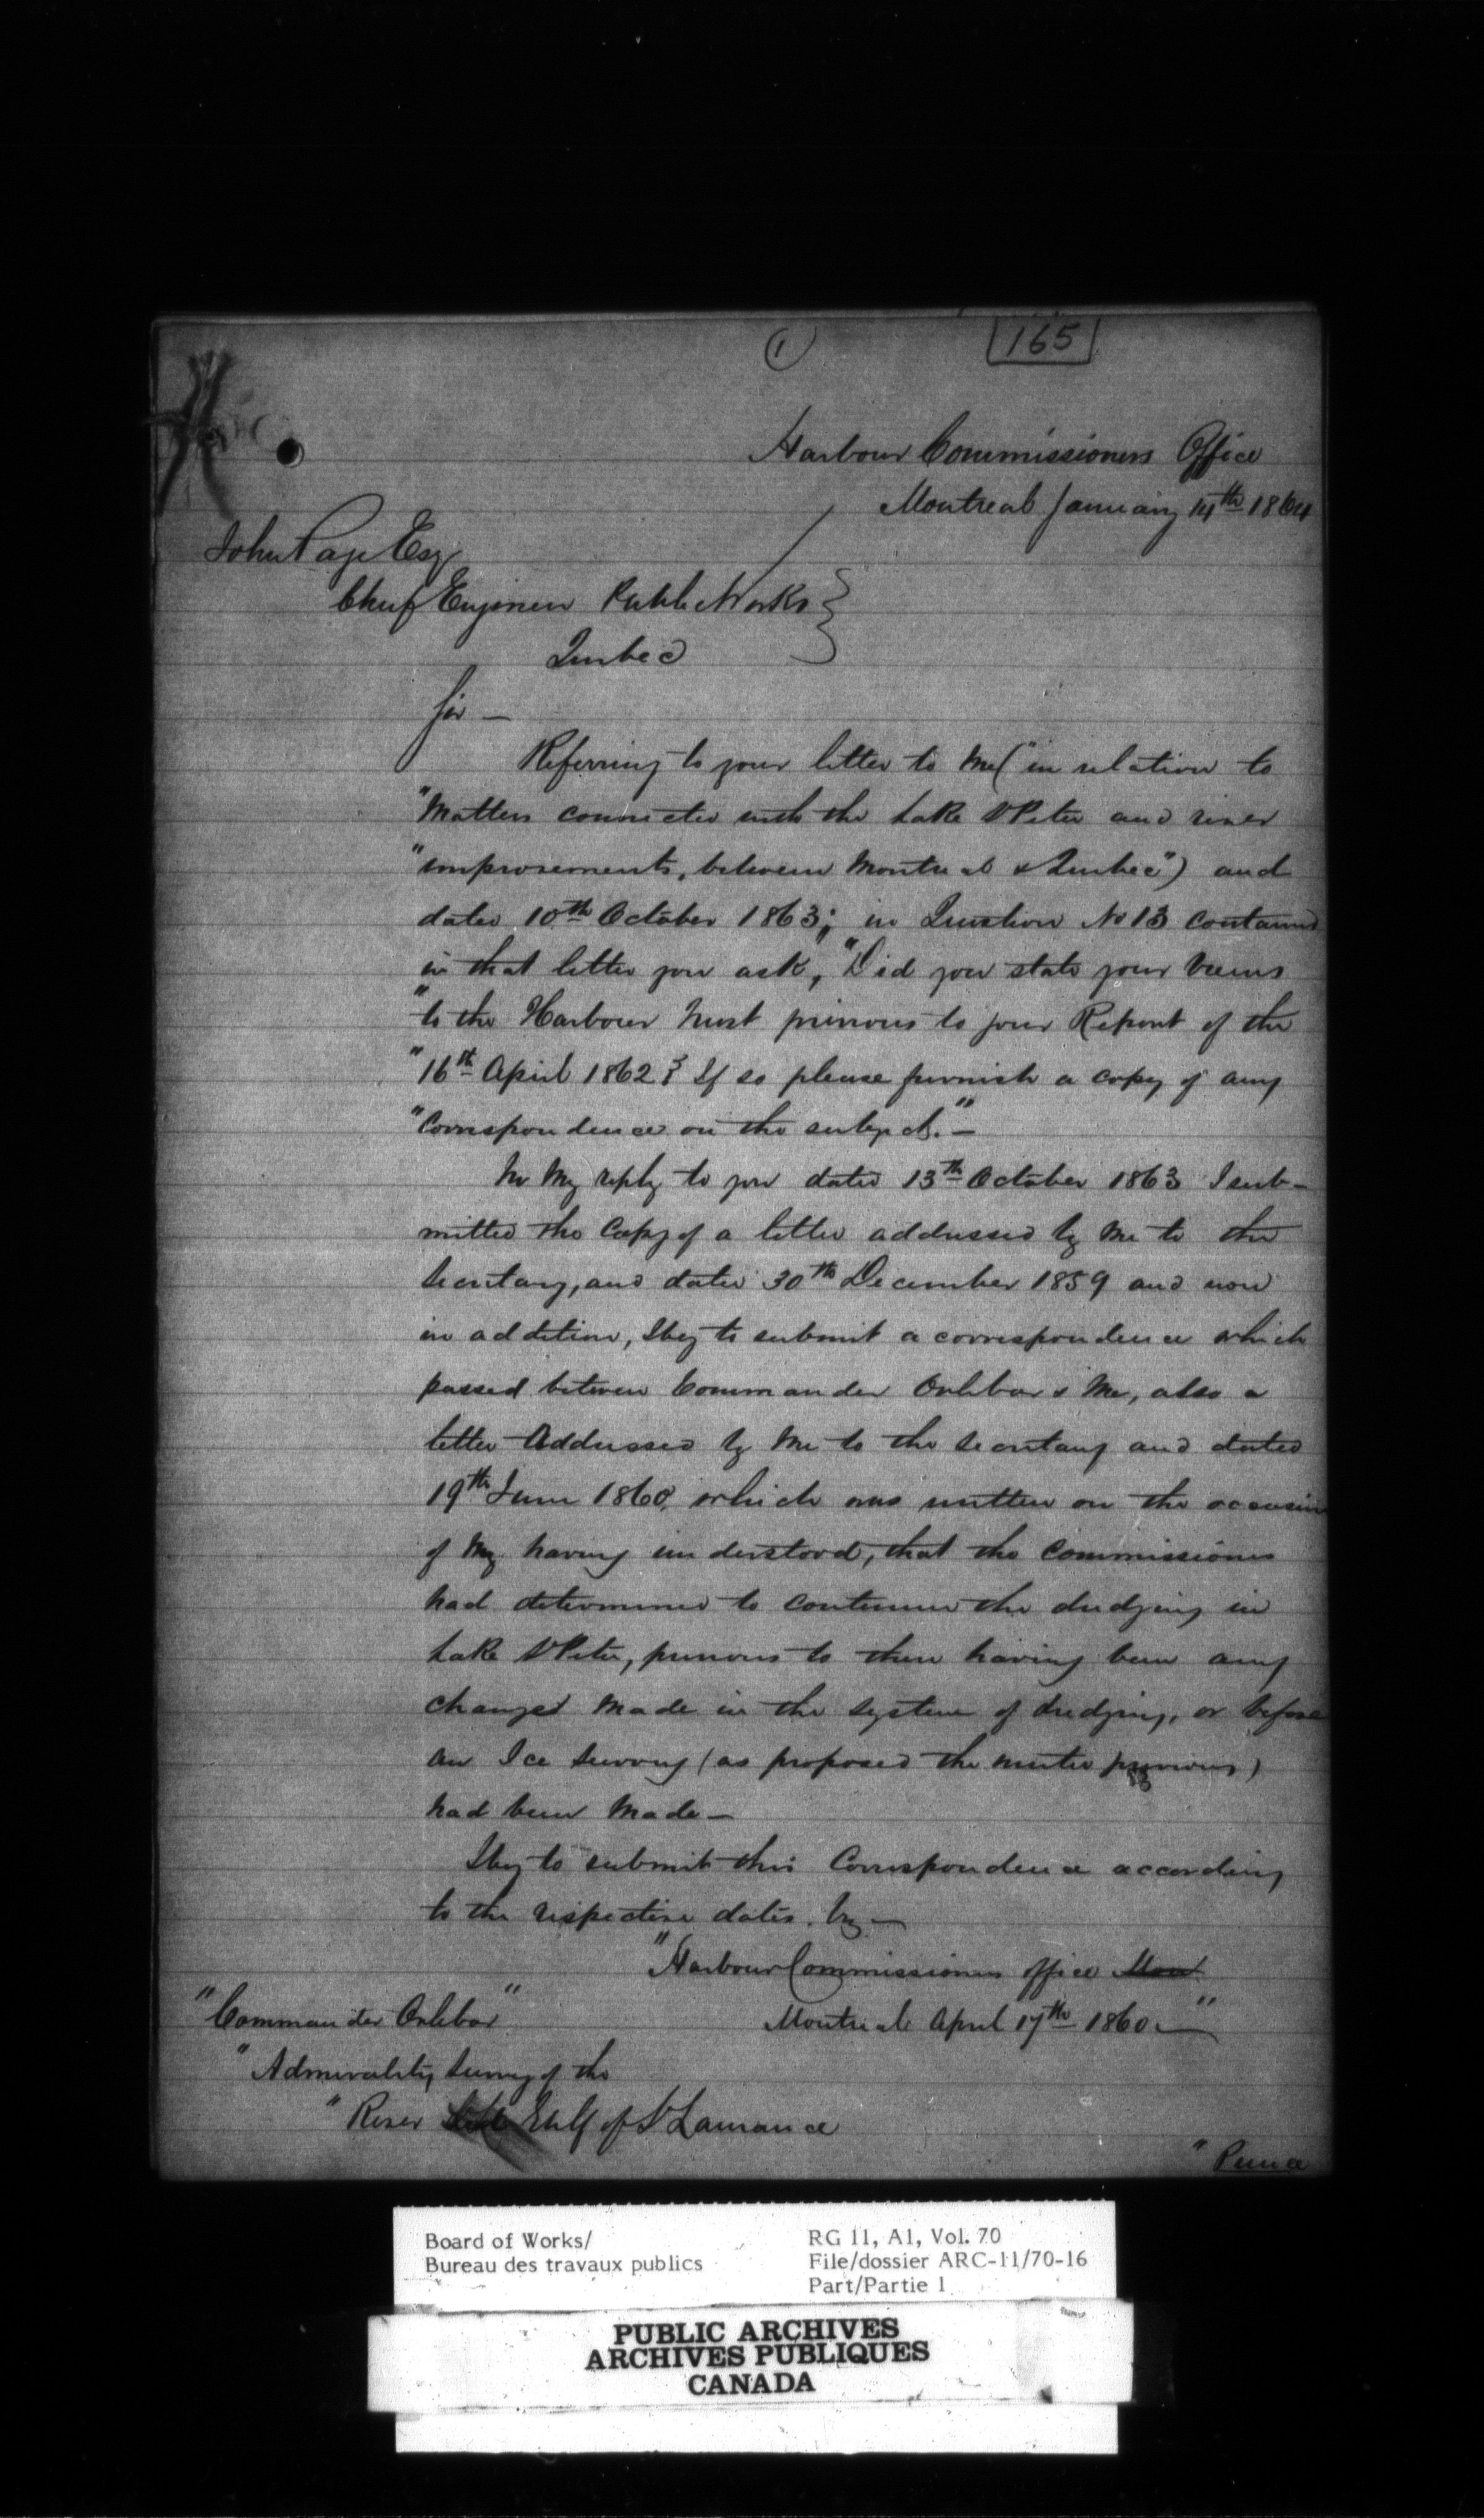 1
165
Harbour Commissioners Office
Montreal January 14th 1864
John Page Esq
Chief Engineer Public Works
Quebec
Sir —
Referring to your letter to me ("in relation to
"Matters connected with the Lake St Peter and river
"improvements, between Montreal & Quebec") and
dated 10th October 1863; in Question No 13 contained
in that letter you ask, "Did you state your views
"to the Harbour Trust previous to your Report of the
"16th April 1862? If so please furnish a copy of any
"Correspondence on the subject." —
In my reply to you dated 13th October 1863 I sub-
mitted the Copy of a letter addressed by me to the
Secretary, and dated 30th December 1859 and now
in addition, I beg to submit a correspondence which
passed between Commander Orlebar & Me, also a
letter Addressed by me to the Secretary and dated
19th June 1860. which was written on the occasion
of my having understood, that the Commissioners
had determined to continue the dredging in
Lake St Peter, previous to there having been any
changes made in the system of dredging, or before
an Ice Survey (as proposed the winter previous)
had been made —
I beg to submit this Correspondence according
to the respective dates. viz —
"Harbour Commissioners office
Montreal April 17th 1860 — "
"Commander Orlebar"
"Admiralty Survey of the
"River Gulf of St Lawrence
Board of Works/
Bureau des travaux publics
RG 11, A1, Vol. 70
File/dossier ARC-11/70-16
Part/Partie 1
PUBLIC ARCHIVES
ARCHIVES PUBLIQUES
CANADA